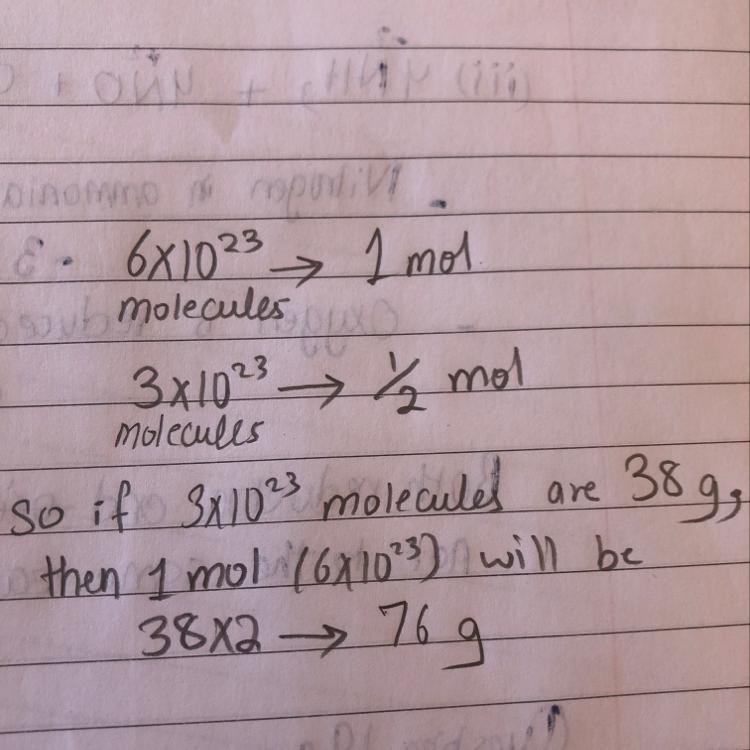 6×10²³ → 1 mol
molecules
3×10²³ → ½ mol
molecules
so if 3×10²³ molecules are 38 g,
then 1 mol (6×10²³) will be
38×2 → 76 g